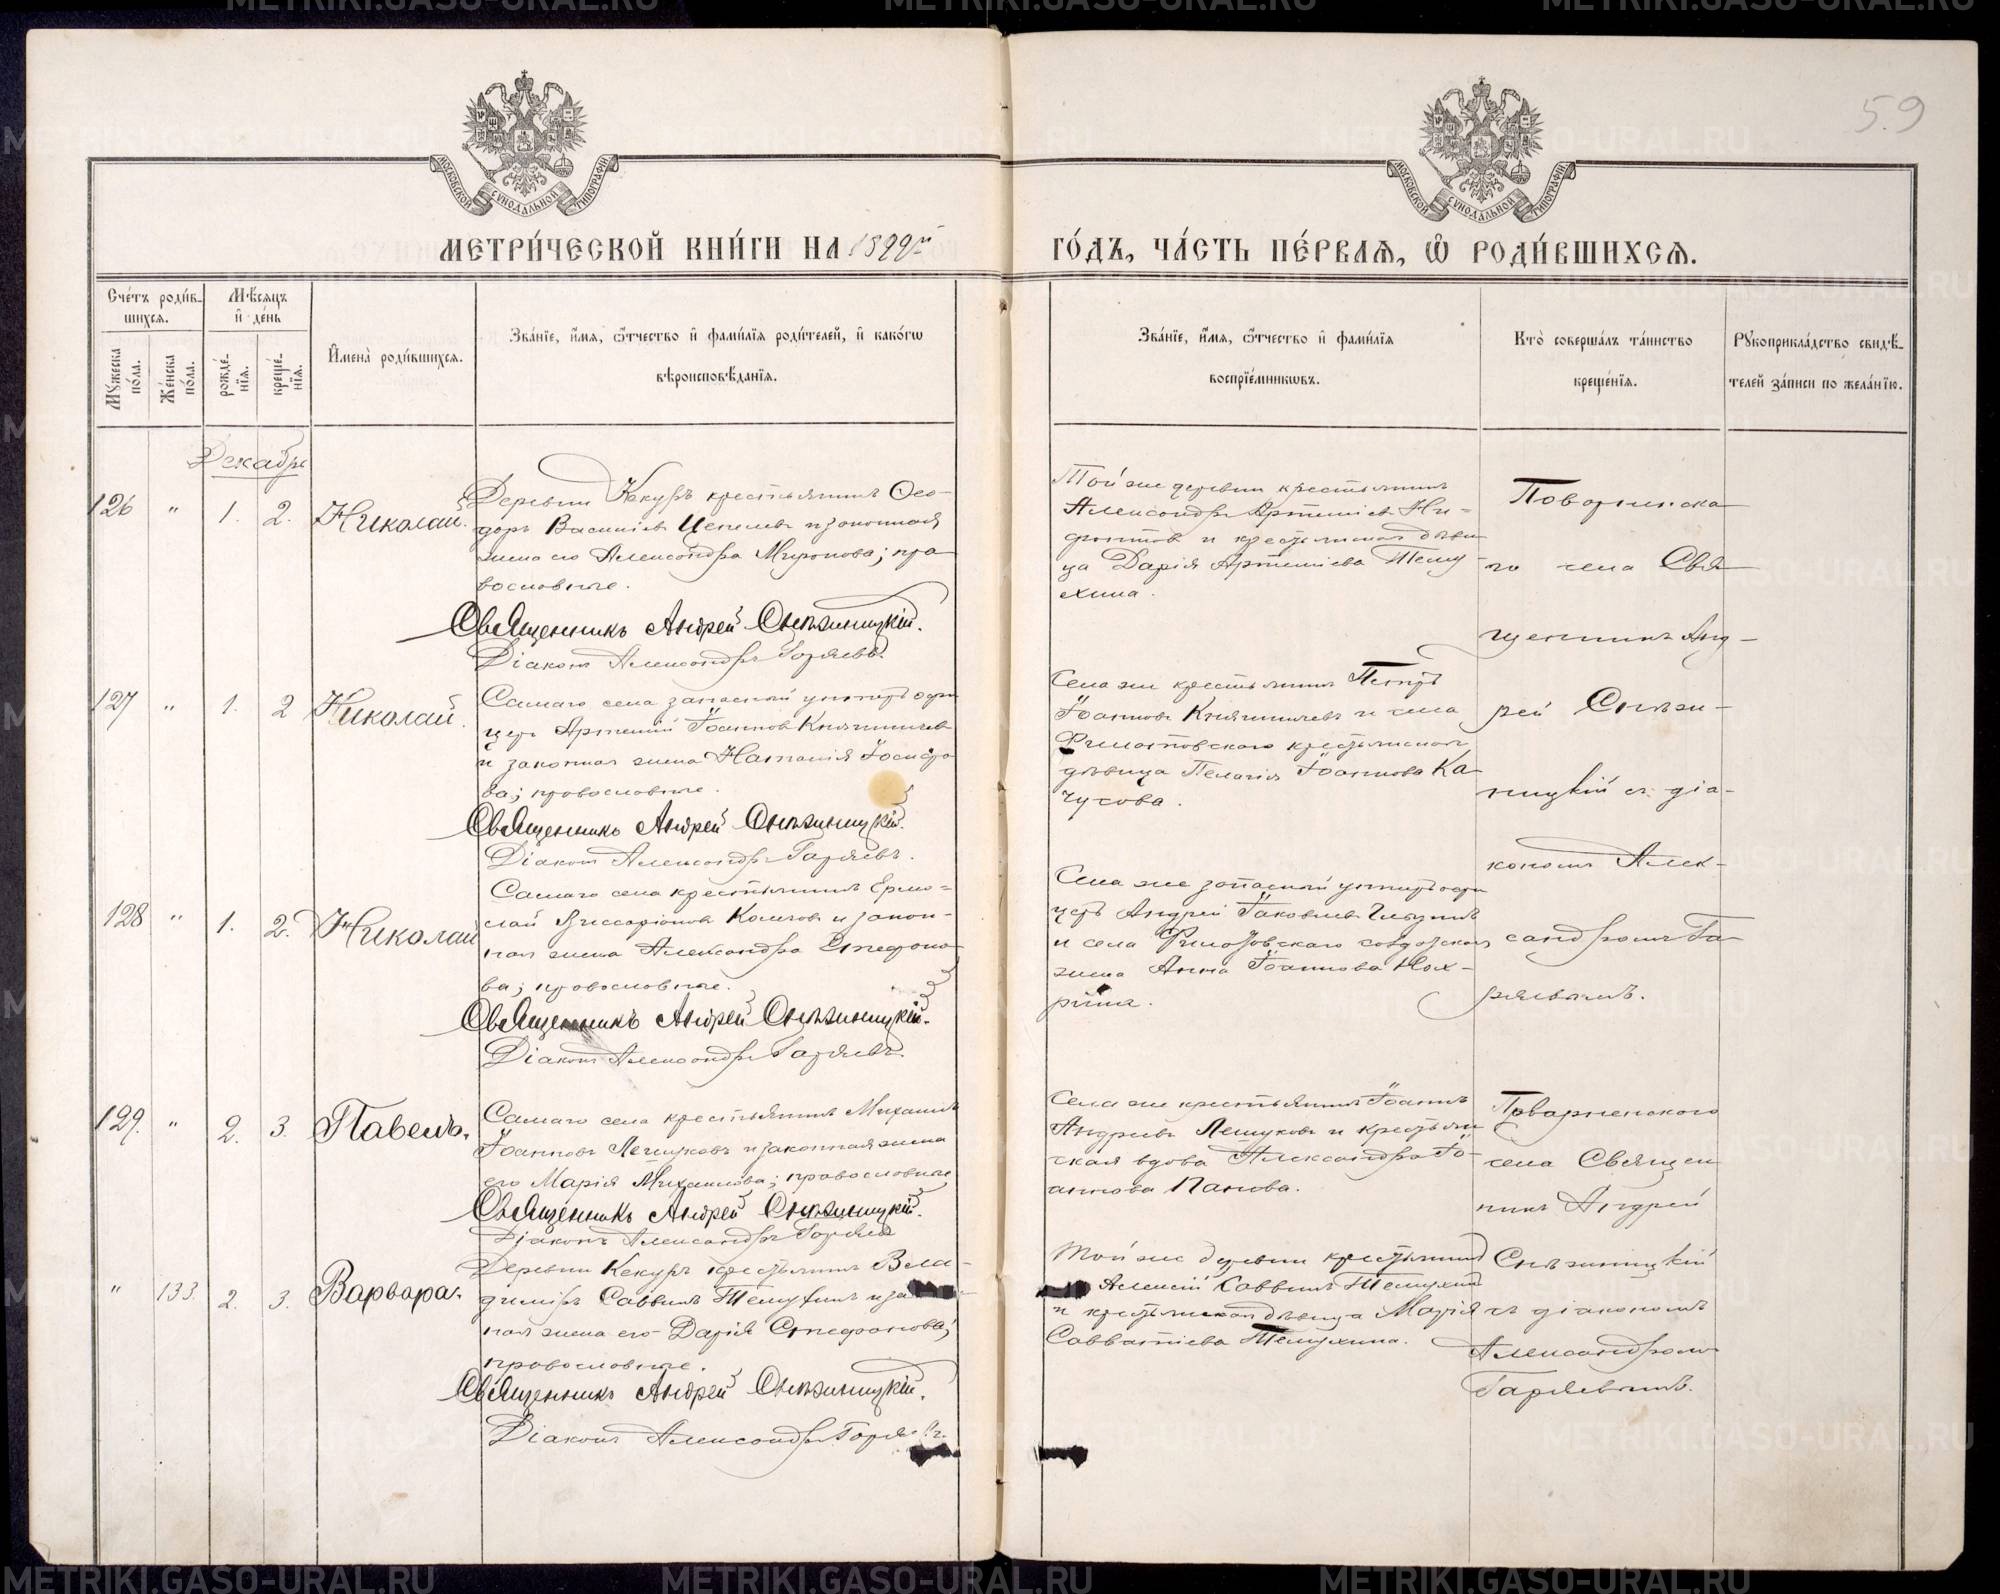 59
МОСКОВСКОЙ СУНОДАЛЬНОЙ ТИПОГРАФІИ
МОСКОВСКОЙ СУНОДАЛЬНОЙ ТИПОГРАФІИ
МЕТРИ́ЧЕСКОЙ КНИ́ГИ НА 1899й
ГО́ДЪ, ЧА́СТЬ ПЕ́РВАѦ, Ѽ РОДИ́ВШИХСѦ.
Счетъ роди́вшихсѧ.
Мужеска по́ла.
Же́нска по́ла.
Мѣ́сѧцъ и҆ де́нь
рожде́нїѧ.
креще́нїѧ.
И҆мена̀ роди́вшихсѧ.
Зва́нїе, и҆́мѧ, ѻ҆́тчество и҆ фами́лїѧ роди́телей, и҆ како́гѡ
вѣроисповѣ́данїѧ.
Зва́нїе, и҆́мѧ, ѻ҆́тчество и҆ фами́лїѧ
воспрїе́мникѡвъ.
Кто̀ соверша́лъ та́инство
креще́нїѧ.
Рꙋкоприкла́дство свидѣ́-
телей за́писи по жела́нїю.
Декабрь
126 " 1. 2. Николай.
Деревни Кекуръ крестьянинъ Ѳео-
доръ Василіевъ и законная
жена его Александра Миронова; пра-
вославные.
Священникъ Андрей Снѣжницкій.
Діаконъ Александръ Гаряевъ.
Той же деревни крестьянинъ
Александръ Артеміевъ Ни-
фонтовъ и крестьянская дѣви-
ца Дарія Артеміева Телу-
хина.
Поварнинска-
го села Свя-
щенникъ Анд-
рей Снѣж-
ницкій съ діа-
кономъ Алек-
сандромъ Га-
ряевымъ.
127 " 1. 2 Николай.
Самаго села запасный унтеръ офи-
церъ Артемій Іоанновъ Княгиничевъ
и законная жена Наталія Іосифо-
ва; православные.
Священникъ Андрей Снѣжницкій.
Діаконъ Александръ Гаряевъ.
Села же крестьянинъ Петръ
Іоанновъ Княгиничевъ и села
крестьянская
дѣвица Пелагія Іоаннова Ка-
чусова.
128 " 1. 2. Николай
Самаго села крестьянинъ Ермо-
лай Виссаріоновъ и закон-
ная жена Александра Стефано-
ва; православные.
Священникъ Андрей Снѣжницкій.
Діаконъ Александръ Гаряевъ.
Села же запасный унтеръ офи-
церъ Андрей Іаковлевъ
и села солдатская
жена Анна Іоаннова Нох-
рина.
129. " 2. 3. Павелъ.
Самаго села крестьянинъ Михаилъ
Іоанновъ Лешуковъ и законная жена
его Марія Михаилова; православные
Священникъ Андрей Снѣжницкій.
Діаконъ Александръ Гаряевъ
Села же крестьянинъ Іоаннъ
Андреевъ Лешуковъ и крестьян-
ская вдова Александра Іо-
аннова Панова.
Поварненского
села Священ-
никъ Андрей
Снѣжницкій
съ діакономъ
Александромъ
Гаряевымъ.
" 133. 2. 3. Варвара.
Деревни Кекуръ крестьянинъ Вла-
диміръ Саввинъ Телухинъ и за
ная жена его Дарія Стефанова;
православные.
Священникъ Андрей Снѣжницкій.
Діаконъ Александръ Гаряевъ.
Той же деревни крестьянинъ
Алексій Саввинъ Телухинъ
и крестьянская дѣвица Марія
Савватіева Телухина.
METRIKI.GASO-URAL.RU